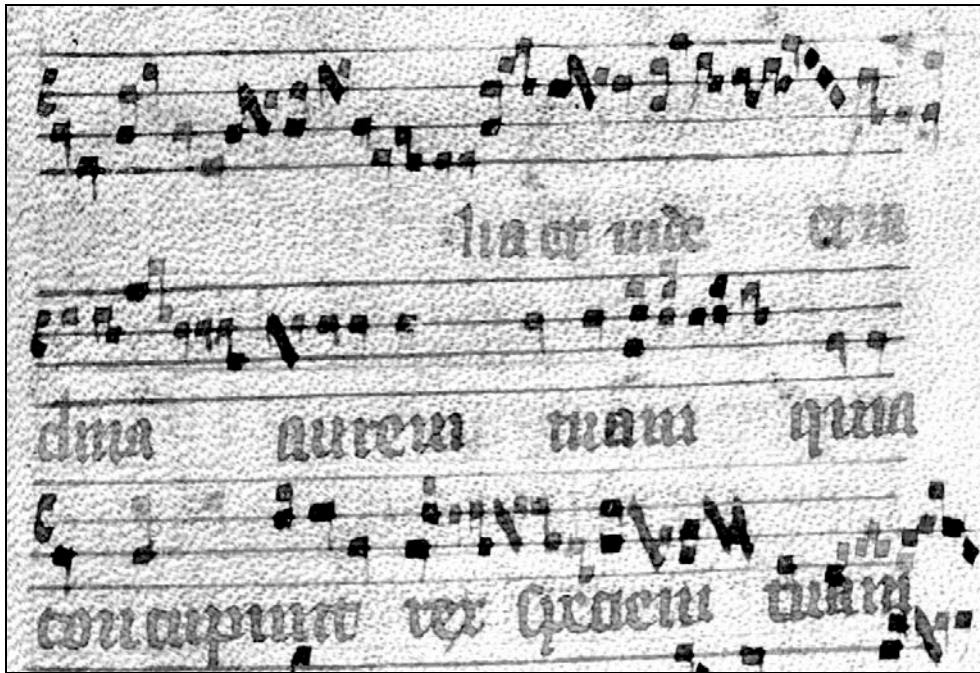 lia et uide et in
clina aurem tuam quia
concupiuit rex speciem tuam